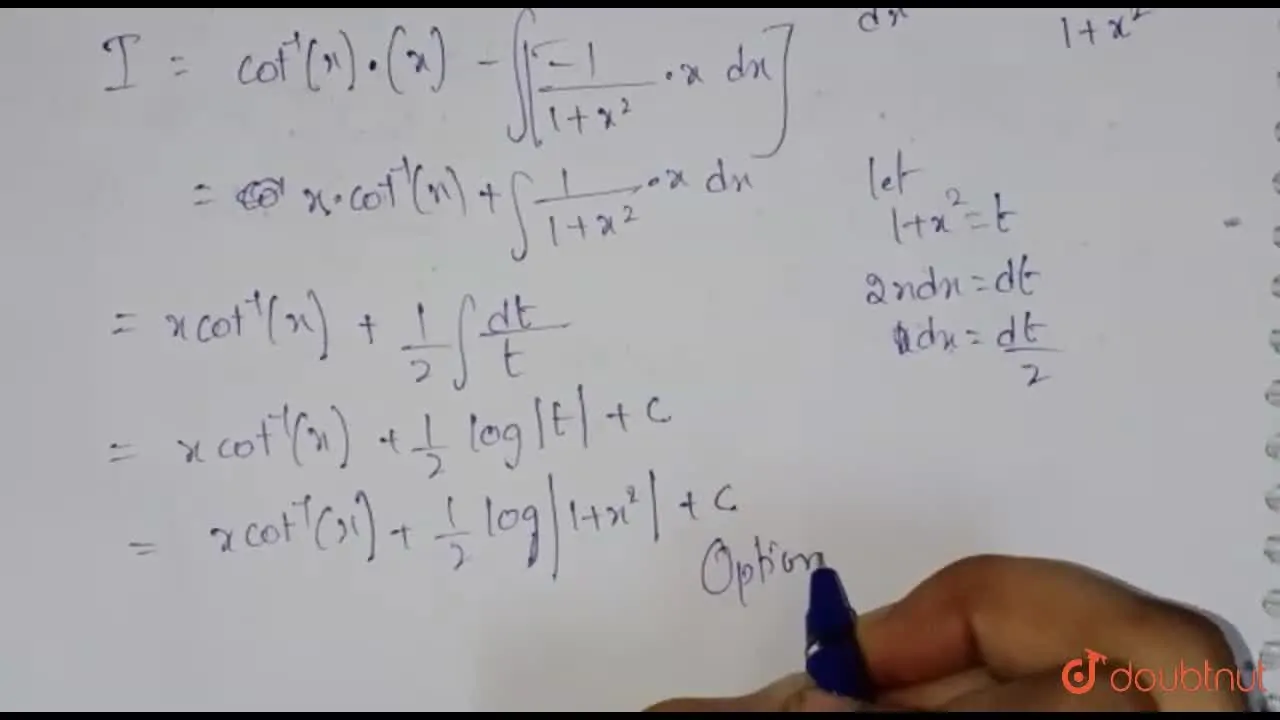 dx
1+x²
I = cot⁻¹(x)•(x) - ∫[-1/1+x² • x dx]
= x•cot⁻¹(x) + ∫ 1/1+x² • x dx
let
1+x² = t
2xdx = dt
xdx = dt/2
= x cot⁻¹(x) + 1/2 ∫ dt/t
= x cot⁻¹(x) + 1/2 log|t| + C
= x cot⁻¹(x) + 1/2 log|1+x²| + C
Option
doubtnut